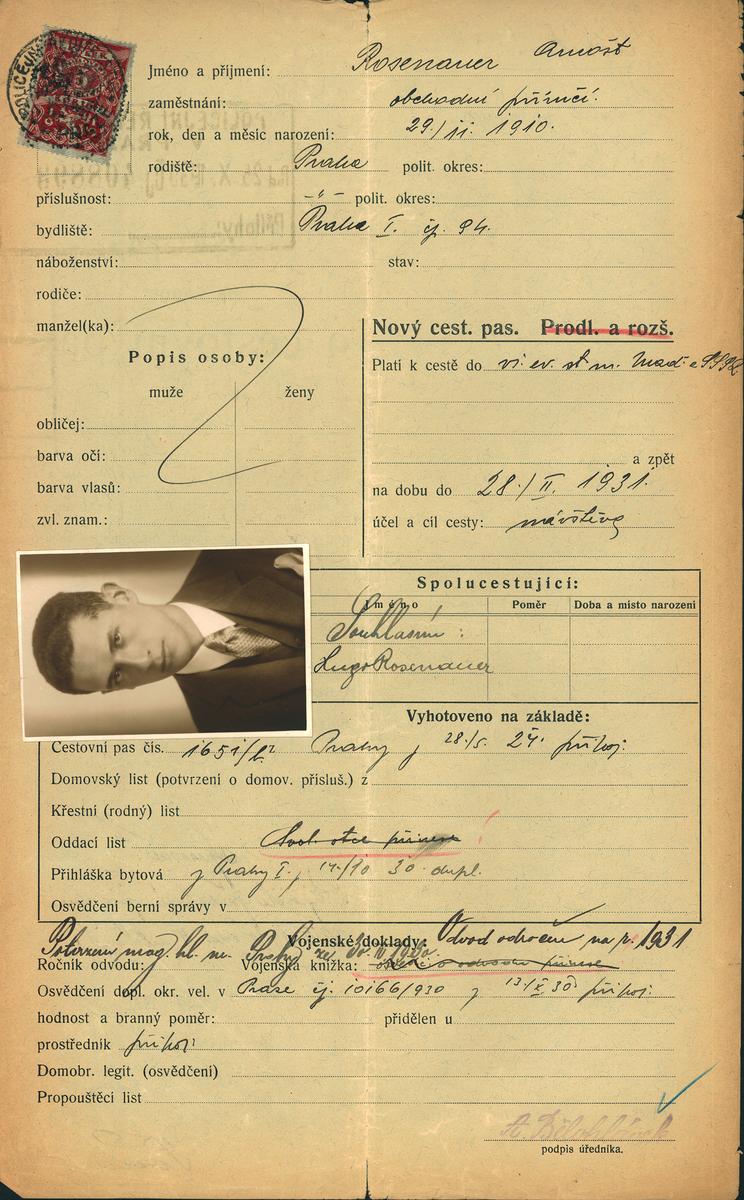 Jméno a příjmení: Rosenauer Arnošt
zaměstnání: obchodní příručí.
rok, den a měsíc narození: 29/II. 1910.
rodiště: Praha polit. okres:
příslušnost: -"- polit. okres:
bydliště: Praha I. čp. 94.
náboženství: stav:
rodiče:
manžel(ka):
Popis osoby:
muže ženy
obličej:
barva očí:
barva vlasů:
zvl. znam.:
Nový cest. pas. Prodl. a rozš.
Platí k cestě do vš. ev. st. m. Maď. a SSSR
a zpět
na dobu do 28./II. 1931.
účel a cíl cesty: návštěva
Spolucestující:
Jméno Poměr Doba a místo narození
Souhlasím:
Hugo Rosenauer
Vyhotoveno na základě:
Cestovní pas čís. 1651/ Prahy 28./5. 27. přiloj.
Domovský list (potvrzení o domov. přísluš.) z
Křestní (rodný) list
Oddací list otce přinese
Přihláška bytová z Prahy I., 14/10 30 dupl.
Osvědčení berní správy v
Vojenské doklady: Odvod odročen na r. 1931
Potvrzení mag. hl. m. Prahy ze
Ročník odvodu: Vojenská knížka: o odvodu přinese
Osvědčení dopl. okr. vel. v Praze čj. 10166/930 z 13./X 30 přiloj.
hodnost a branný poměr: přidělen u
prostředník přiloj.
Domobr. legit. (osvědčení)
Propouštěcí list
podpis úředníka.